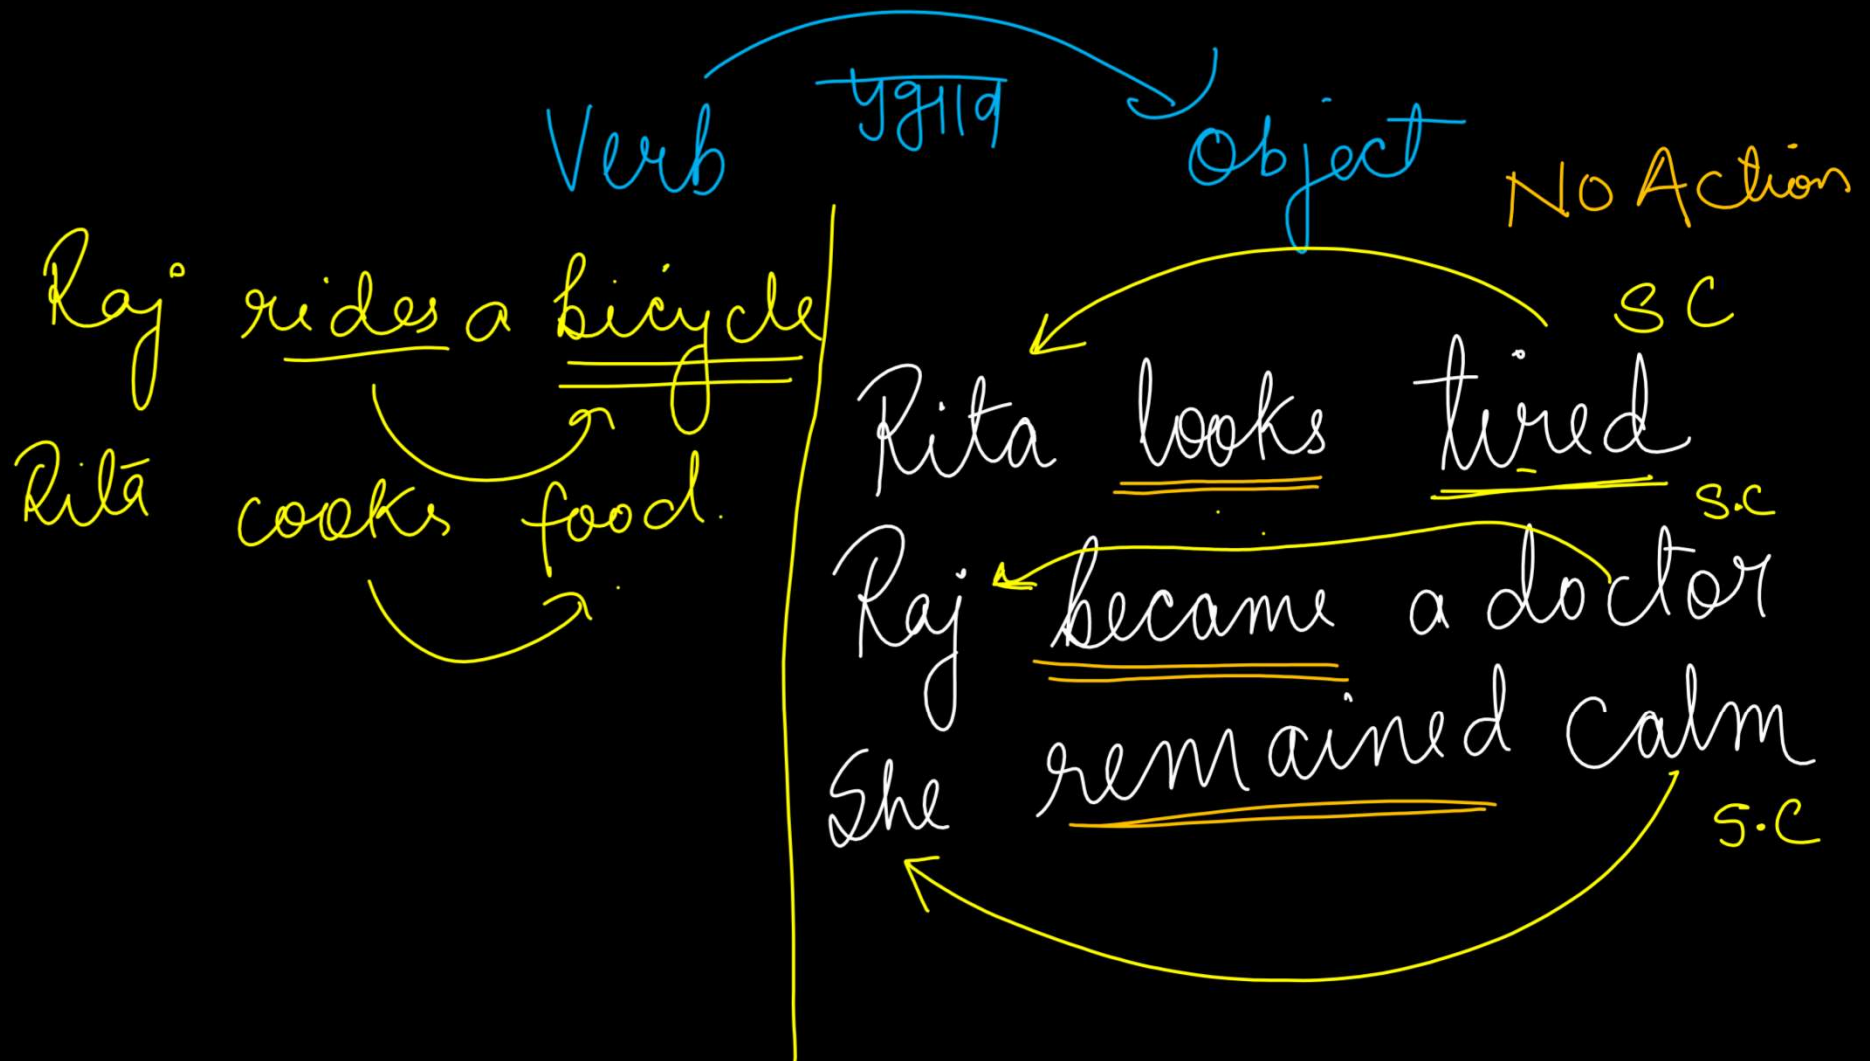 Verb प्रभाव Object
No Action
Raj rides a bicycle
Rita cooks food.
SC
Rita looks tired
S.C
Raj became a doctor
She remained calm
S.C